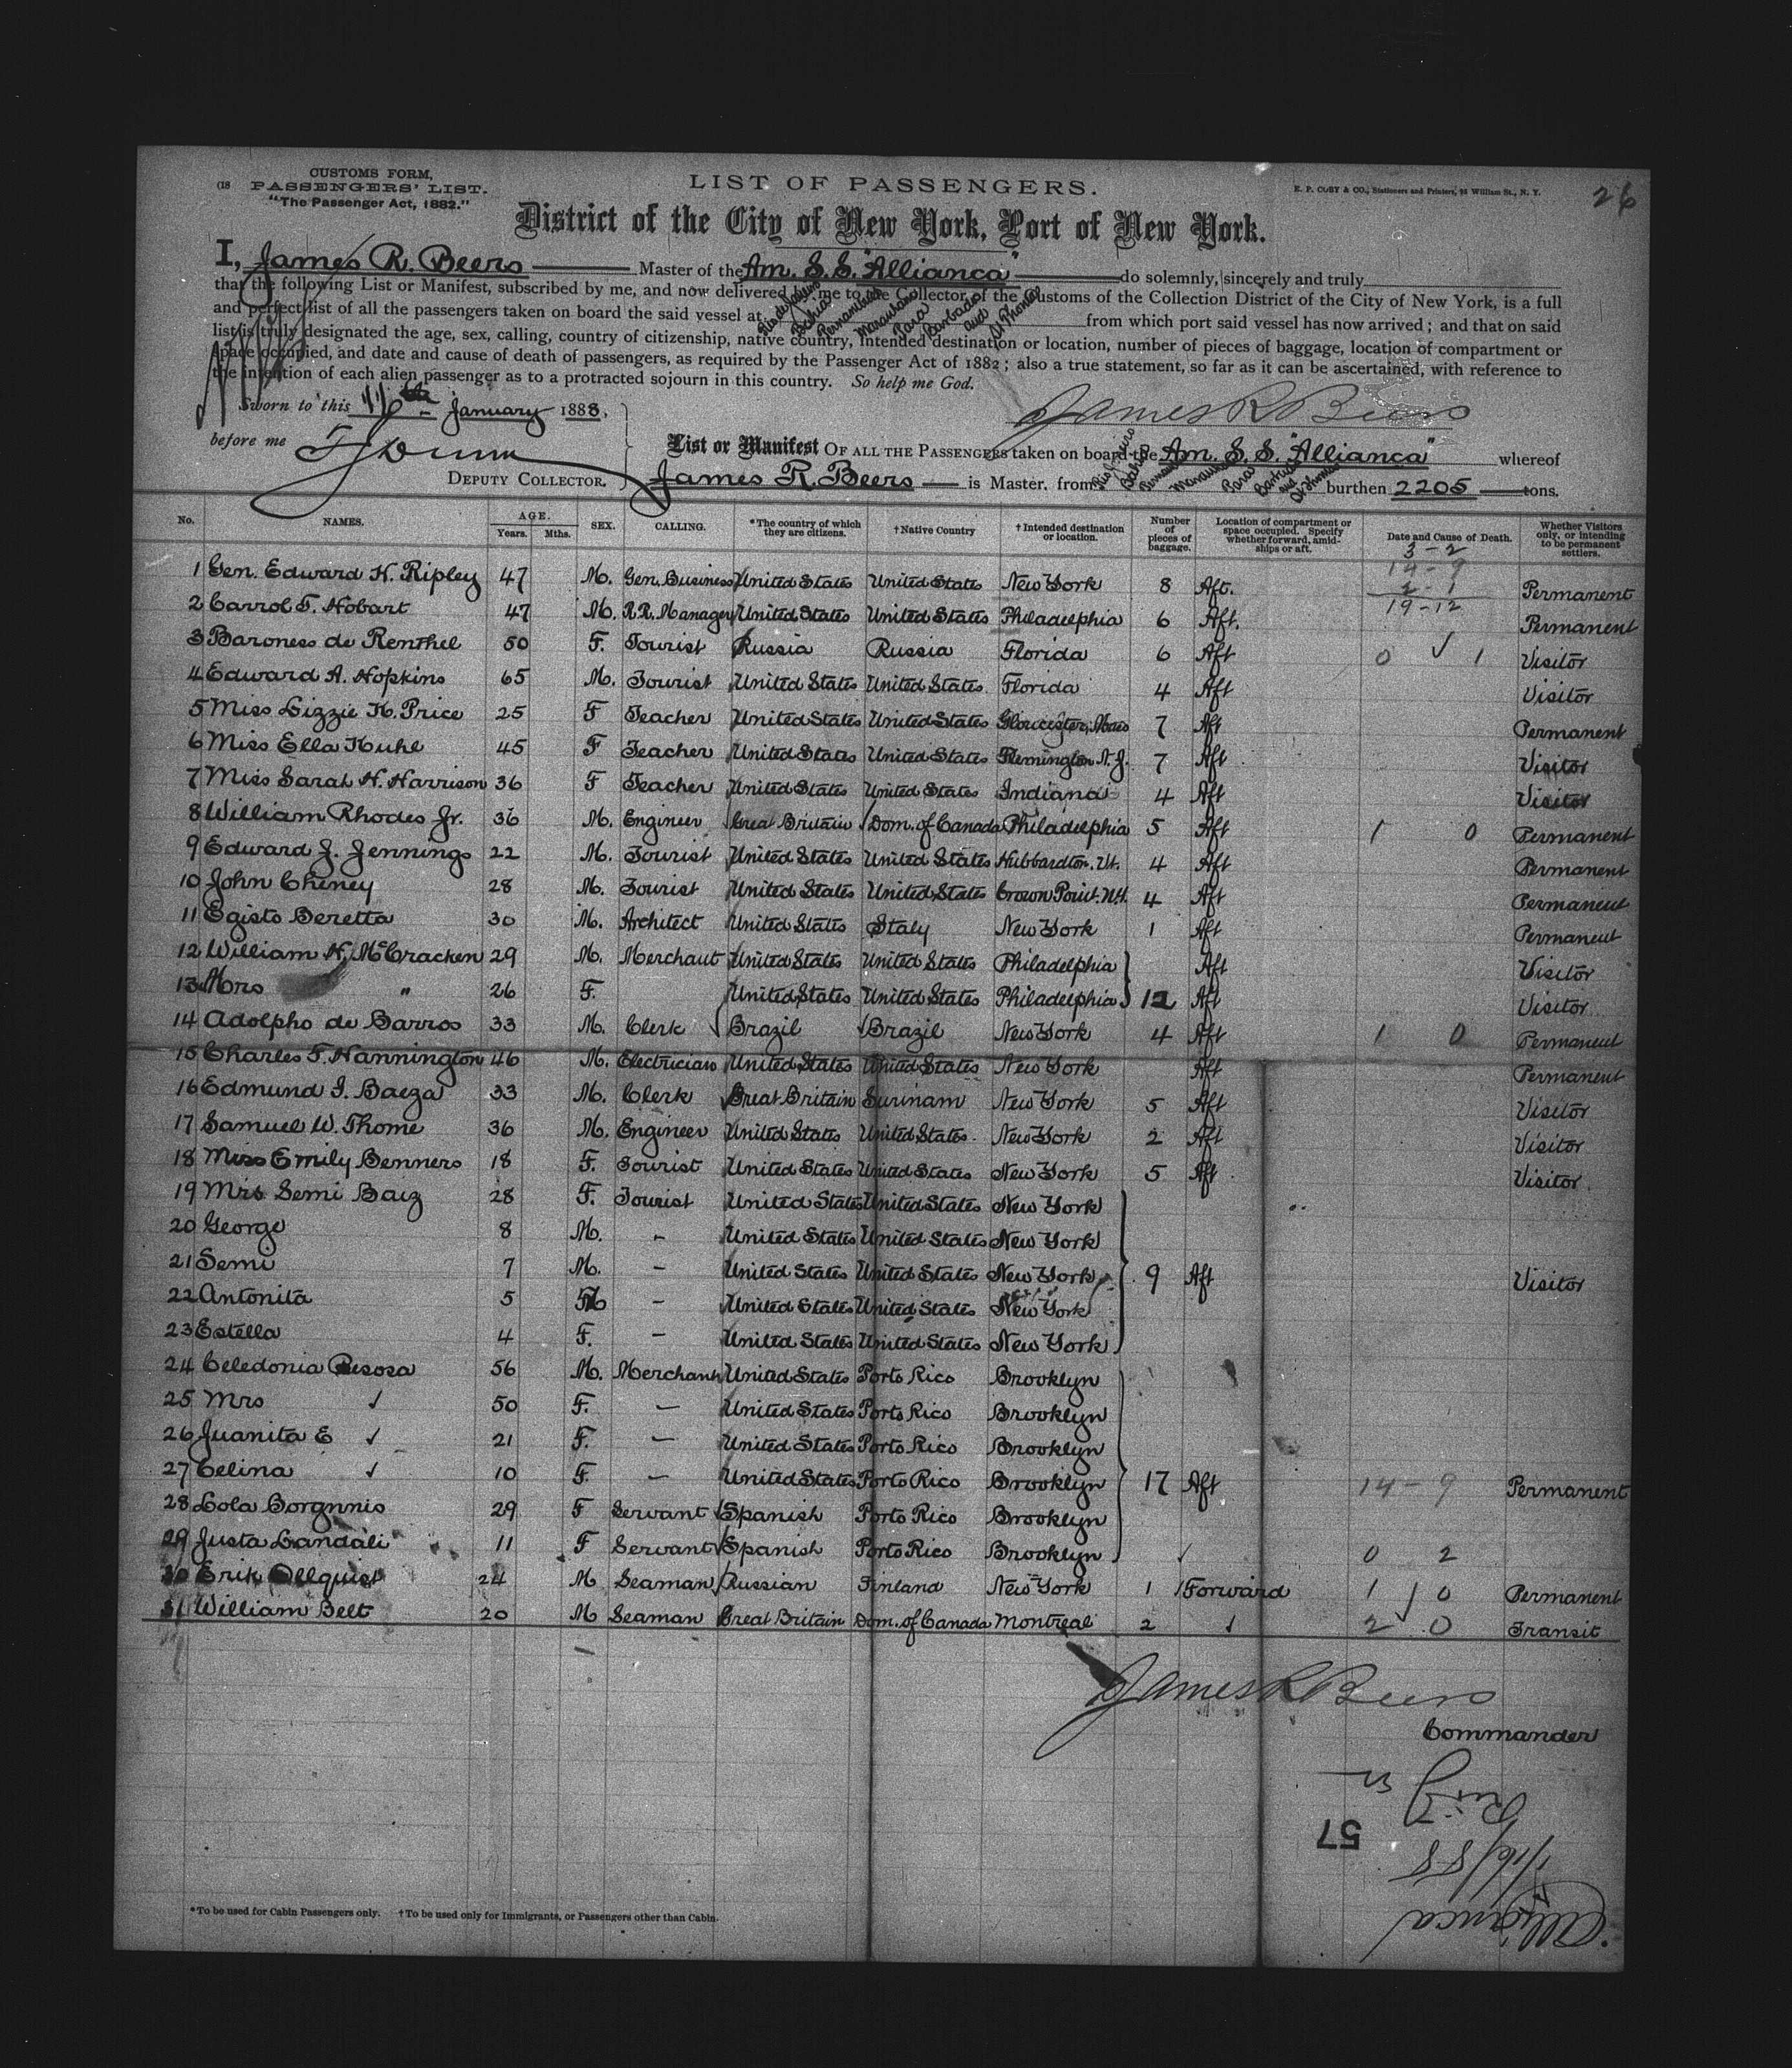 CUSTOMS FORM,
(18 PASSENGERS' LIST.
"The Passenger Act, 1882."
LIST OF PASSENGERS.
E. P. COBY & CO., Stationers and Printers, 94 William St., N. Y.
26
District of the City of New York, Port of New York.
I, James R. Beers Master of the Am. S. S. "Allianca" do solemnly, sincerely and truly
that the following List or Manifest, subscribed by me, and now delivered by me to the Collector of the Customs of the Collection District of the City of New York, is a full
and perfect list of all the passengers taken on board the said vessel at Rio de Janeiro Bahia Pernambuco Maranham Para Barbados and St Thomas from which port said vessel has now arrived; and that on said
list is truly designated the age, sex, calling, country of citizenship, native country, intended destination or location, number of pieces of baggage, location of compartment or
space occupied, and date and cause of death of passengers, as required by the Passenger Act of 1882; also a true statement, so far as it can be ascertained, with reference to
the intention of each alien passenger as to a protracted sojourn in this country. So help me God.
Sworn to this 16th January 1888,
James R Beers
before me
DEPUTY COLLECTOR.
List or Manifest OF ALL THE PASSENGERS taken on board the Am. S. S. "Allianca" whereof
James R. Beers is Master, from Rio de Janeiro Bahia Pernambuco Maranham Para Barbados and St Thomas burthen 2205 tons.
No. NAMES. AGE. Years. Mths. SEX. CALLING. *The country of which they are citizens. †Native Country †Intended destination or location. Number of pieces of baggage. Location of compartment or space occupied. Specify whether forward, amidships or aft. Date and Cause of Death. Whether Visitors only, or intending to be permanent settlers.
3-2
14-9
2-1
19-12
1 Gen. Edward H. Ripley 47 M. Gen. Business United States United States New York 8 Aft. Permanent
2 Carrol T. Hobart 47 M. R.R. Manager United States United States Philadelphia 6 Aft. Permanent
3 Baroness de Renthel 50 F. Tourist Russia Russia Florida 6 Aft 0 ✓ 1 Visitor
4 Edward A. Hopkins 65 M. Tourist United States United States Florida 4 Aft Visitor
5 Miss Lizzie K. Price 25 F Teacher United States United States Gloucester, Mass 7 Aft Permanent
6 Miss Ella Kuhl 45 F Teacher United States United States Flemington N. J. 7 Aft Visitor
7 Miss Sarah H. Harrison 36 F Teacher United States United States Indiana 4 Aft Visitor
8 William Rhodes Jr. 36 M. Engineer Great Britain Dom. of Canada Philadelphia 5 Aft 1 0 Permanent
9 Edward J. Jennings 22 M. Tourist United States United States Hubbardton. Vt. 4 Aft Permanent
10 John Cheney 28 M. Tourist United States United States Crown Point. N.Y. 4 Aft Permanent
11 Egisto Beretta 30 M. Architect United States Italy New York 1 Aft Permanent
12 William H. McCracken 29 M. Merchant United States United States Philadelphia Aft Visitor
13 Mrs " 26 F. United States United States Philadelphia 12 Aft Visitor
14 Adolpho de Barros 33 M. Clerk Brazil Brazil New York 4 Aft 1 0 Permanent
15 Charles F. Hannington 46 M. Electrician United States United States New York Aft Permanent
16 Edmund I. Baeza 33 M. Clerk Great Britain Surinam New York 5 Aft Visitor
17 Samuel W. Thome 36 M. Engineer United States United States New York 2 Aft Visitor
18 Miss Emily Benners 18 F. Tourist United States United States New York 5 Aft Visitor
19 Mrs Semi Baiz 28 F. Tourist United States United States New York
20 George 8 M. - United States United States New York
21 Semi 7 M. - United States United States New York 9 Aft Visitor
22 Antonita 5 - United States United States New York
23 Estella 4 F. - United States United States New York
24 Celedonia Pesosa 56 M. Merchant United States Porto Rico Brooklyn
25 Mrs ✓ 50 F. - United States Porto Rico Brooklyn
26 Juanita E ✓ 21 F. - United States Porto Rico Brooklyn
27 Celina ✓ 10 F. - United States Porto Rico Brooklyn 17 Aft 14-9 Permanent
28 Lola Borgnnis 29 F Servant Spanish Porto Rico Brooklyn
29 Justa Landali 11 F Servant Spanish Porto Rico Brooklyn ✓ 0 2
30 Erik Ollquist 24 M Seaman Russian Finland New York 1 Forward 1 0 Permanent
31 William Belt 20 M Seaman Great Britain Dom. of Canada Montreal 2 ✓ 2 0 Transit
James R Beers
Commander
57
1/16/88
Allianca
*To be used for Cabin Passengers only. †To be used only for Immigrants, or Passengers other than Cabin.